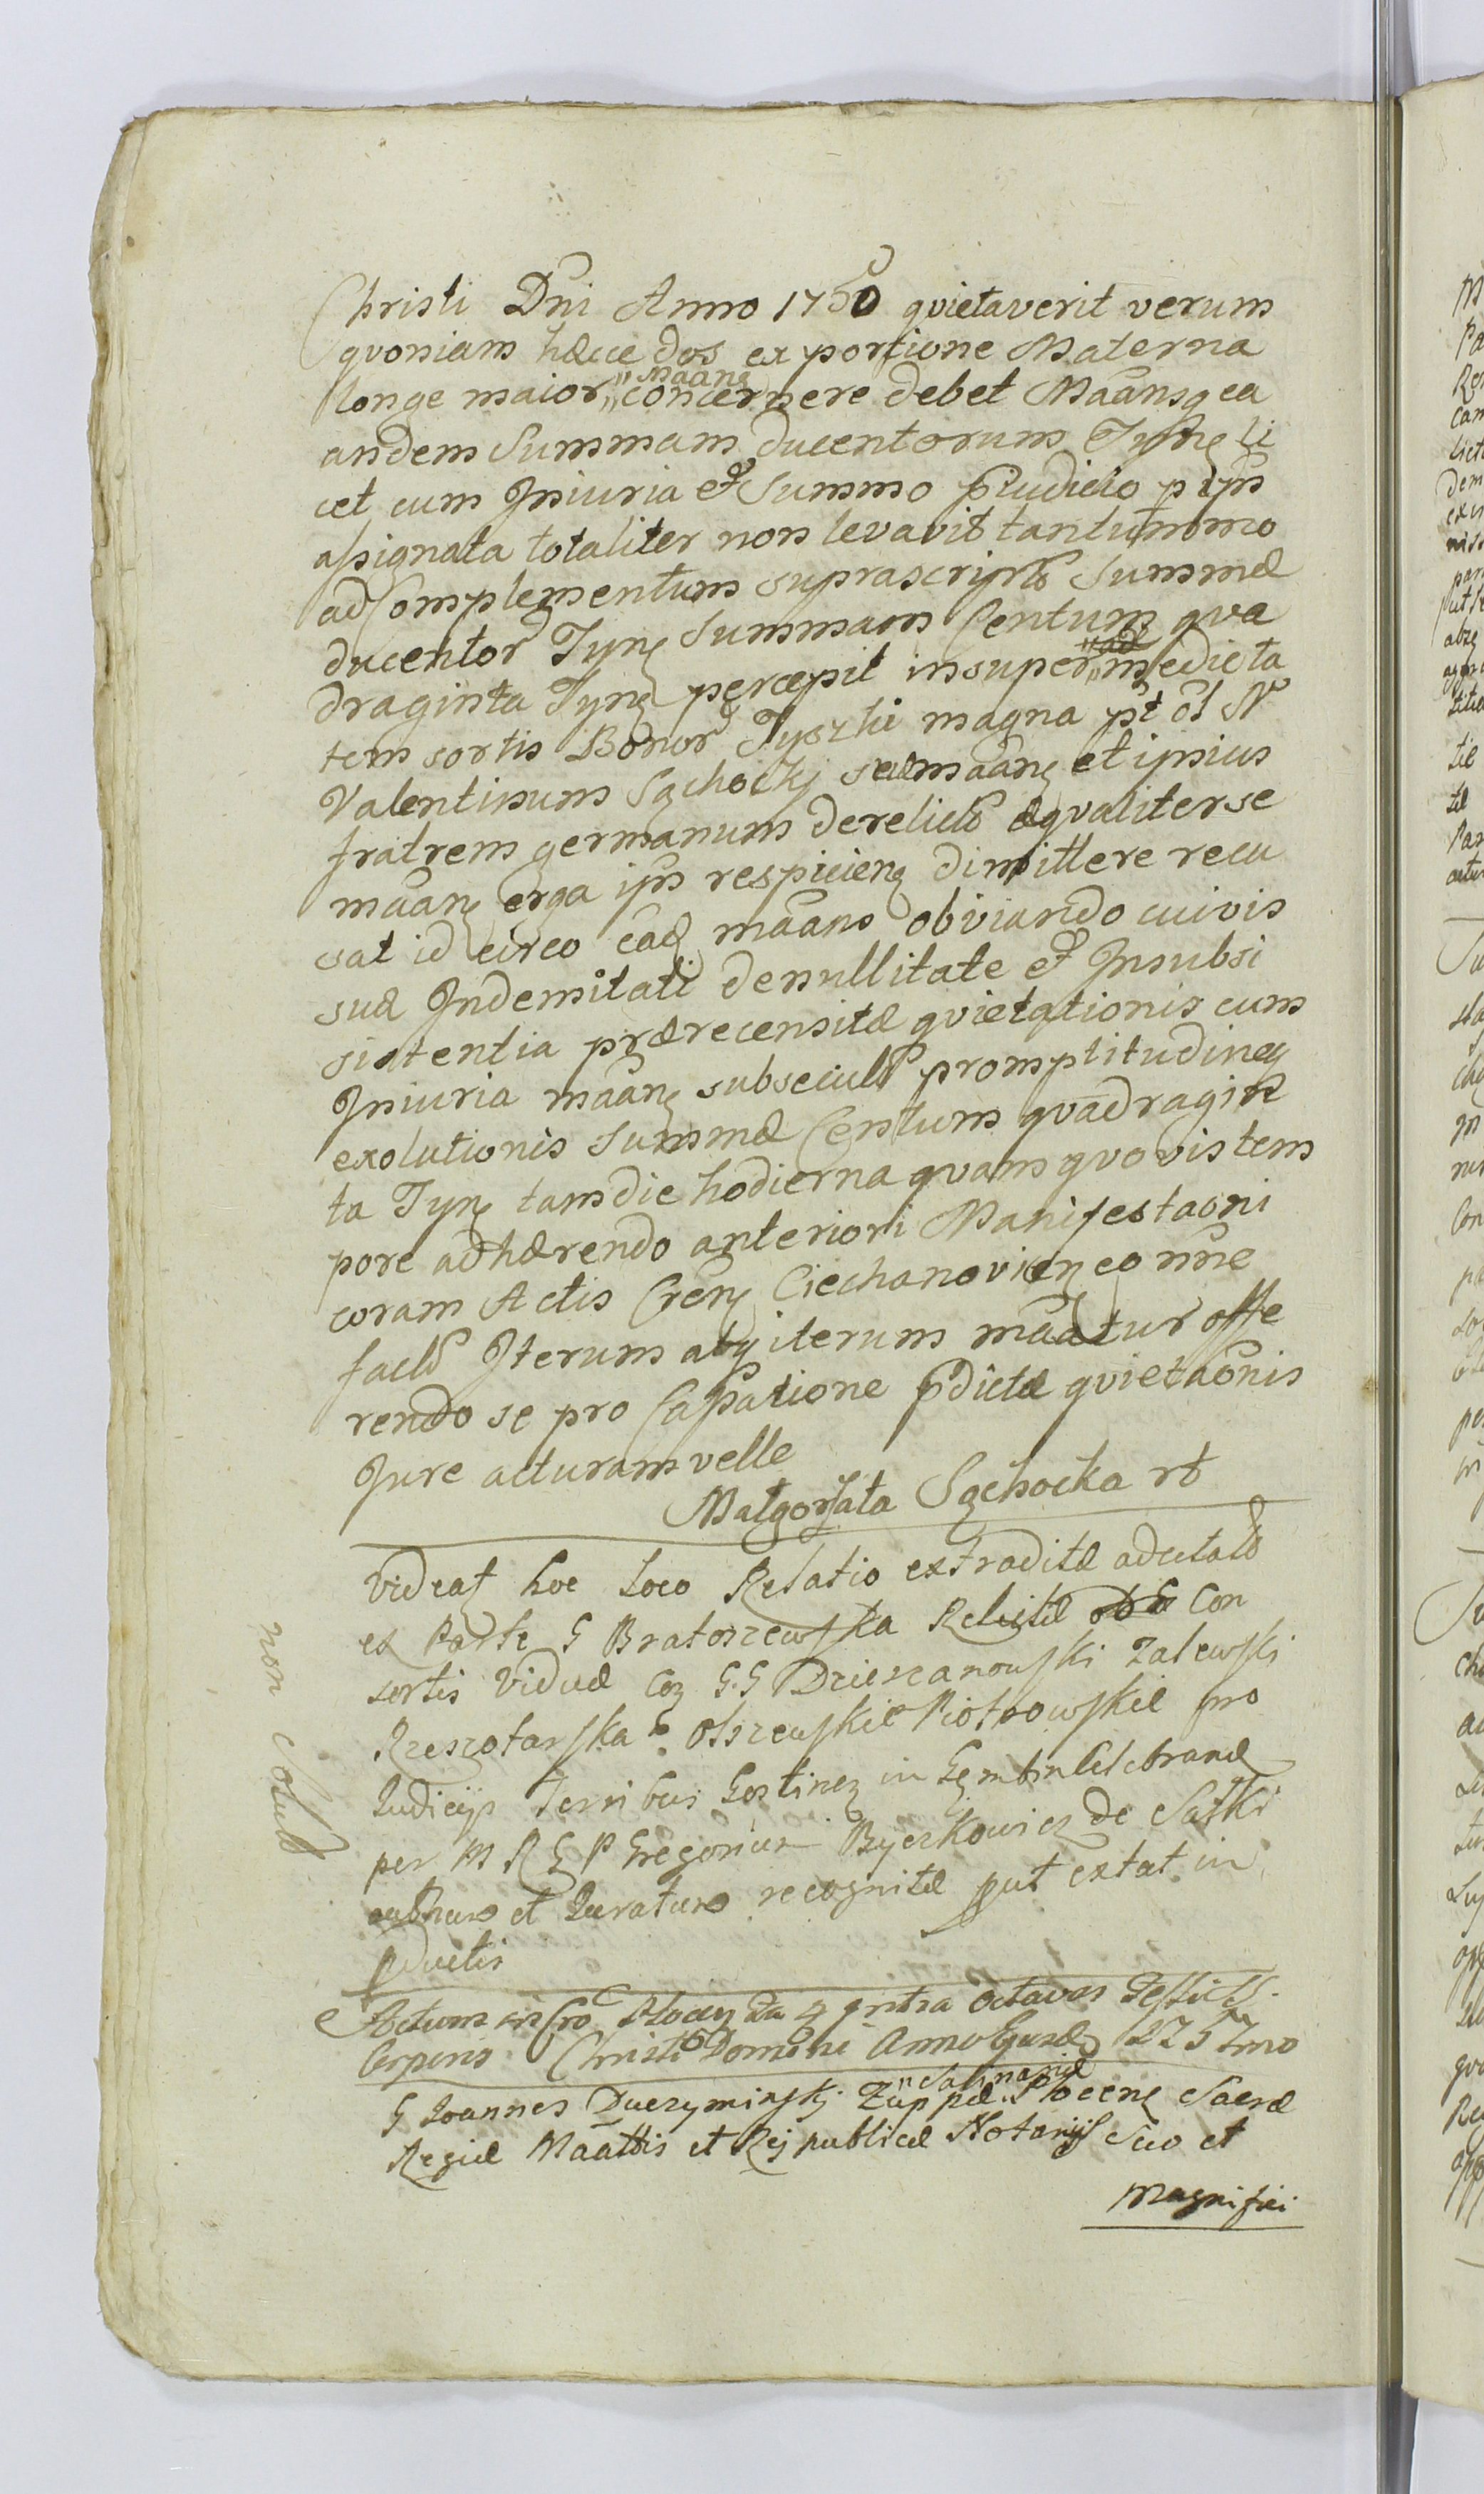 Christi Dni Anno 1750 qvietaverit verum
qvoniam hæcce dos ex portione Materna
longe maior „Maanę„ concernere debet Maansq ea
andem Summam ducentorum Tynf li
cet cum Injuria et Summo pîudicio p ipm
assignata totaliter non levavit tantummo
ad Complementum suprascriptæ Summæ
ducentor Tynf Summam Centum qva
draginta Tynf percepit insuper medieta
tem sortis Bonor Tyszki magna pt ol N
Valentinum Sąchocki maanę et ipsius
fratrem germanum derelictæ æqvaliter se
maanę erga ipm respicienę dimittere recu
sat id circo eadę maans obviando cuivis
suæ Indemitati de nullitate et Insubsi
stentia prærecensitæ qvietationis cum
Injuria maanę subsecutæ promptitudineq
exolutionis Summæ Centum qvadragin
ta Tynf tam die hodierna qvam qvovis tem
pore adhærendo anteriori Manifestaoni
coram Actis Cren Ciechanovien eo nne
factæ Iterum atq iterum maatur offe
rendo se pro Cassatione pdictæ qvietaonis
Jure acturam velle
Małgorzata Sąchocka rt
Videat hoc Loco Relatio extraditæ
ex Parte G Bratoszewska Relictæ Con
sortis Viduæ Coz G.G Dzierzanowski Zalewski
Rzeszotarska Olszewskie Piotrowskie pro
Judiciis Terribus Gostinen in Gembin Celebrand
per M R G P Gregorium Byczkowicz de Satki
et Juratum recognitæ put extat in
pductis
non Solut
Actum in Cro Plocen Fa 4 intra Octavas Festi SS.
Corporis Christi Domini Anno Ejusd 1757mo
G Joannes Duczyminski Zuppæ „Salinariæ„ Plocenę Sacræ
Regiæ Maattis et Rej publicæ Notarijs Suo et
Magnifici